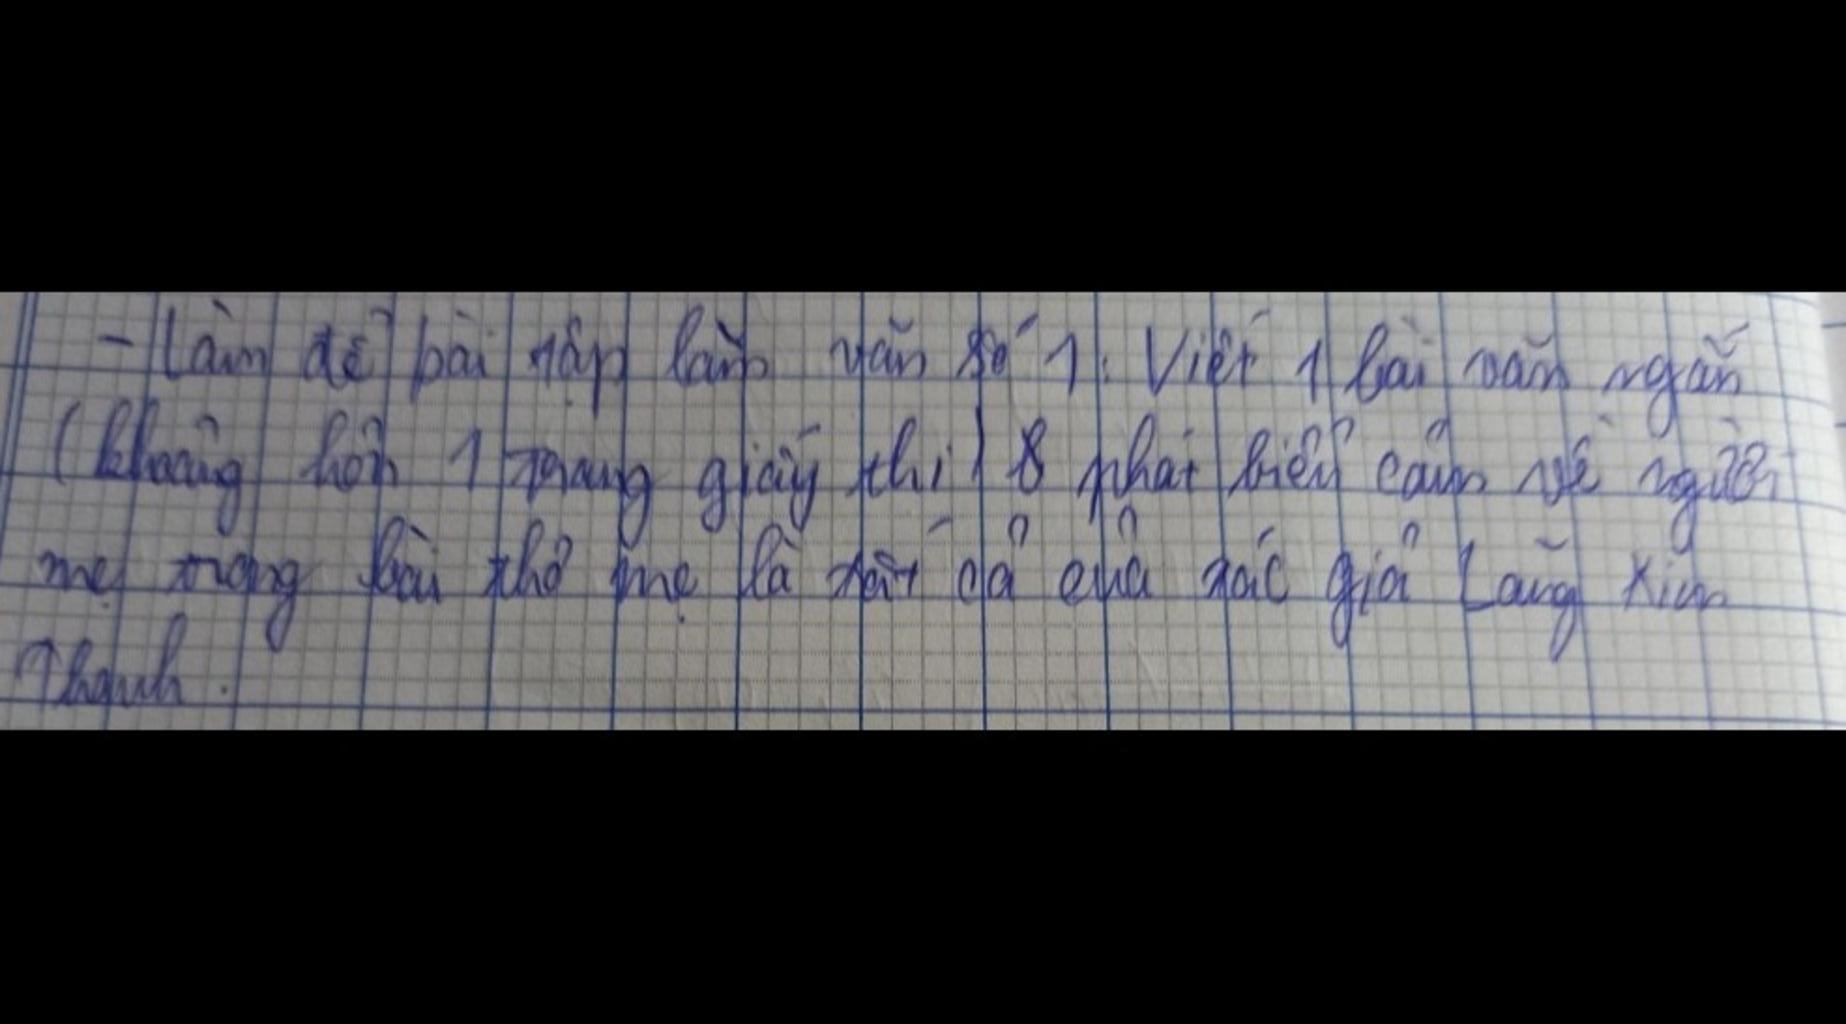 - Làm đề bài tập làm văn số 1: Viết 1 bài văn ngắn
(khoảng hơn 1 trang giấy thi) phát biểu cảm về người
mẹ trong bài thơ mẹ là tất cả của tác giả Lăng Kim
Thanh.